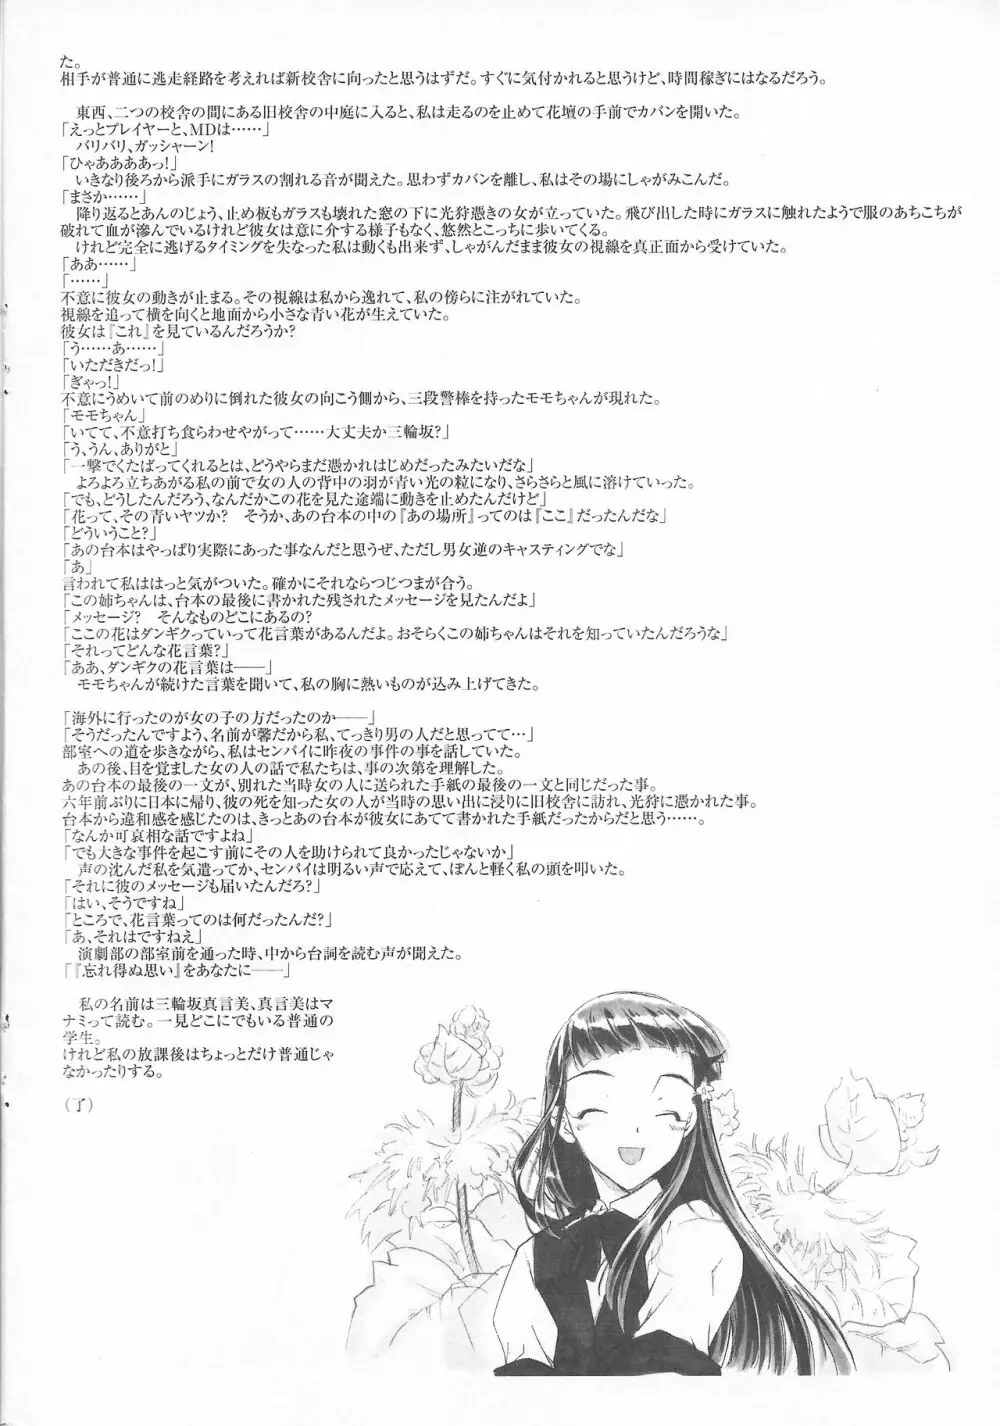 た。
相手が普通に逃走経路を考えれば新校舎に向ったと思うはずだ。すぐに気付かれると思うけど、時間稼ぎにはなるだろう。
東西、二つの校舎の間にある旧校舎の中庭に入ると、私は走るのを止めて花壇の手前でカバンを開いた。
「えっとプレイヤーと、MDは……」
バリバリ、ガッシャーン!
「ひゃああああっ!」
いきなり後ろから派手にガラスの割れる音が聞えた。思わずカバンを離し、私はその場にしゃがみこんだ。
「まさか……」
降り返るとあんのじょう、止め板もガラスも壊れた窓の下に光狩憑きの女が立っていた。飛び出した時にガラスに触れたようで服のあちこちが
破れて血が滲んでいるけれど彼女は意に介する様子もなく、悠然とこっちに歩いてくる。
けれど完全に逃げるタイミングを失なった私は動くも出来ず、しゃがんだまま彼女の視線を真正面から受けていた。
「ああ……」
「……」
不意に彼女の動きが止まる。その視線は私から逸れて、私の傍らに注がれていた。
視線を追って横を向くと地面から小さな青い花が生えていた。
彼女は『これ』を見ているんだろうか?
「う……あ……」
「いただきだっ!」
「ぎゃっ!」
不意にうめいて前のめりに倒れた彼女の向こう側から、三段警棒を持ったモモちゃんが現れた。
「モモちゃん」
「いてて、不意打ち食らわせやがって……大丈夫か三輪坂?」
「う、うん、ありがと」
「一撃でくたばってくれるとは、どうやらまだ憑かれはじめだったみたいだな」
よろよろ立ちあがる私の前で女の人の背中の羽が青い光の粒になり、さらさらと風に溶けていった。
「でも、どうしたんだろう、なんだかこの花を見た途端に動きを止めたんだけど」
「花って、その青いヤツか? そうか、あの台本の中の『あの場所』ってのは『ここ』だったんだな」
「どういうこと?」
「あの台本はやっぱり実際にあった事なんだと思うぜ、ただし男女逆のキャスティングでな」
「あ」
言われて私ははっと気がついた。確かにそれならつじつまが合う。
「この姉ちゃんは、台本の最後に書かれた残されたメッセージを見たんだよ」
「メッセージ? そんなものどこにあるの?
「ここの花はダンギクっていって花言葉があるんだよ。おそらくこの姉ちゃんはそれを知っていたんだろうな」
「それってどんな花言葉?」
「ああ、ダンギクの花言葉は――」
モモちゃんが続けた言葉を聞いて、私の胸に熱いものが込み上げてきた。
「海外に行ったのが女の子の方だったのか――」
「そうだったんですよう、名前が馨だから私、てっきり男の人だと思ってて…」
部室への道を歩きながら、私はセンパイに昨夜の事件の事を話していた。
あの後、目を覚ました女の人の話で私たちは、事の次第を理解した。
あの台本の最後の一文が、別れた当時女の人に送られた手紙の最後の一文と同じだった事。
六年前ぶりに日本に帰り、彼の死を知った女の人が当時の思い出に浸りに旧校舎に訪れ、光狩に憑かれた事。
台本から違和感を感じたのは、きっとあの台本が彼女にあてて書かれた手紙だったからだと思う……。
「なんか可哀相な話ですよね」
「でも大きな事件を起こす前にその人を助けられて良かったじゃないか」
声の沈んだ私を気遣ってか、センパイは明るい声で応えて、ぽんと軽く私の頭を叩いた。
「それに彼のメッセージも届いたんだろ?」
「はい、そうですね」
「ところで、花言葉ってのは何だったんだ?」
「あ、それはですねえ」
演劇部の部室前を通った時、中から台詞を読む声が聞えた。
「『忘れ得ぬ思い』をあなたに――」
私の名前は三輪坂真言美、真言美はマ
ナミって読む。一見どこにでもいる普通の
学生。
けれど私の放課後はちょっとだけ普通じゃ
なかったりする。
(了)